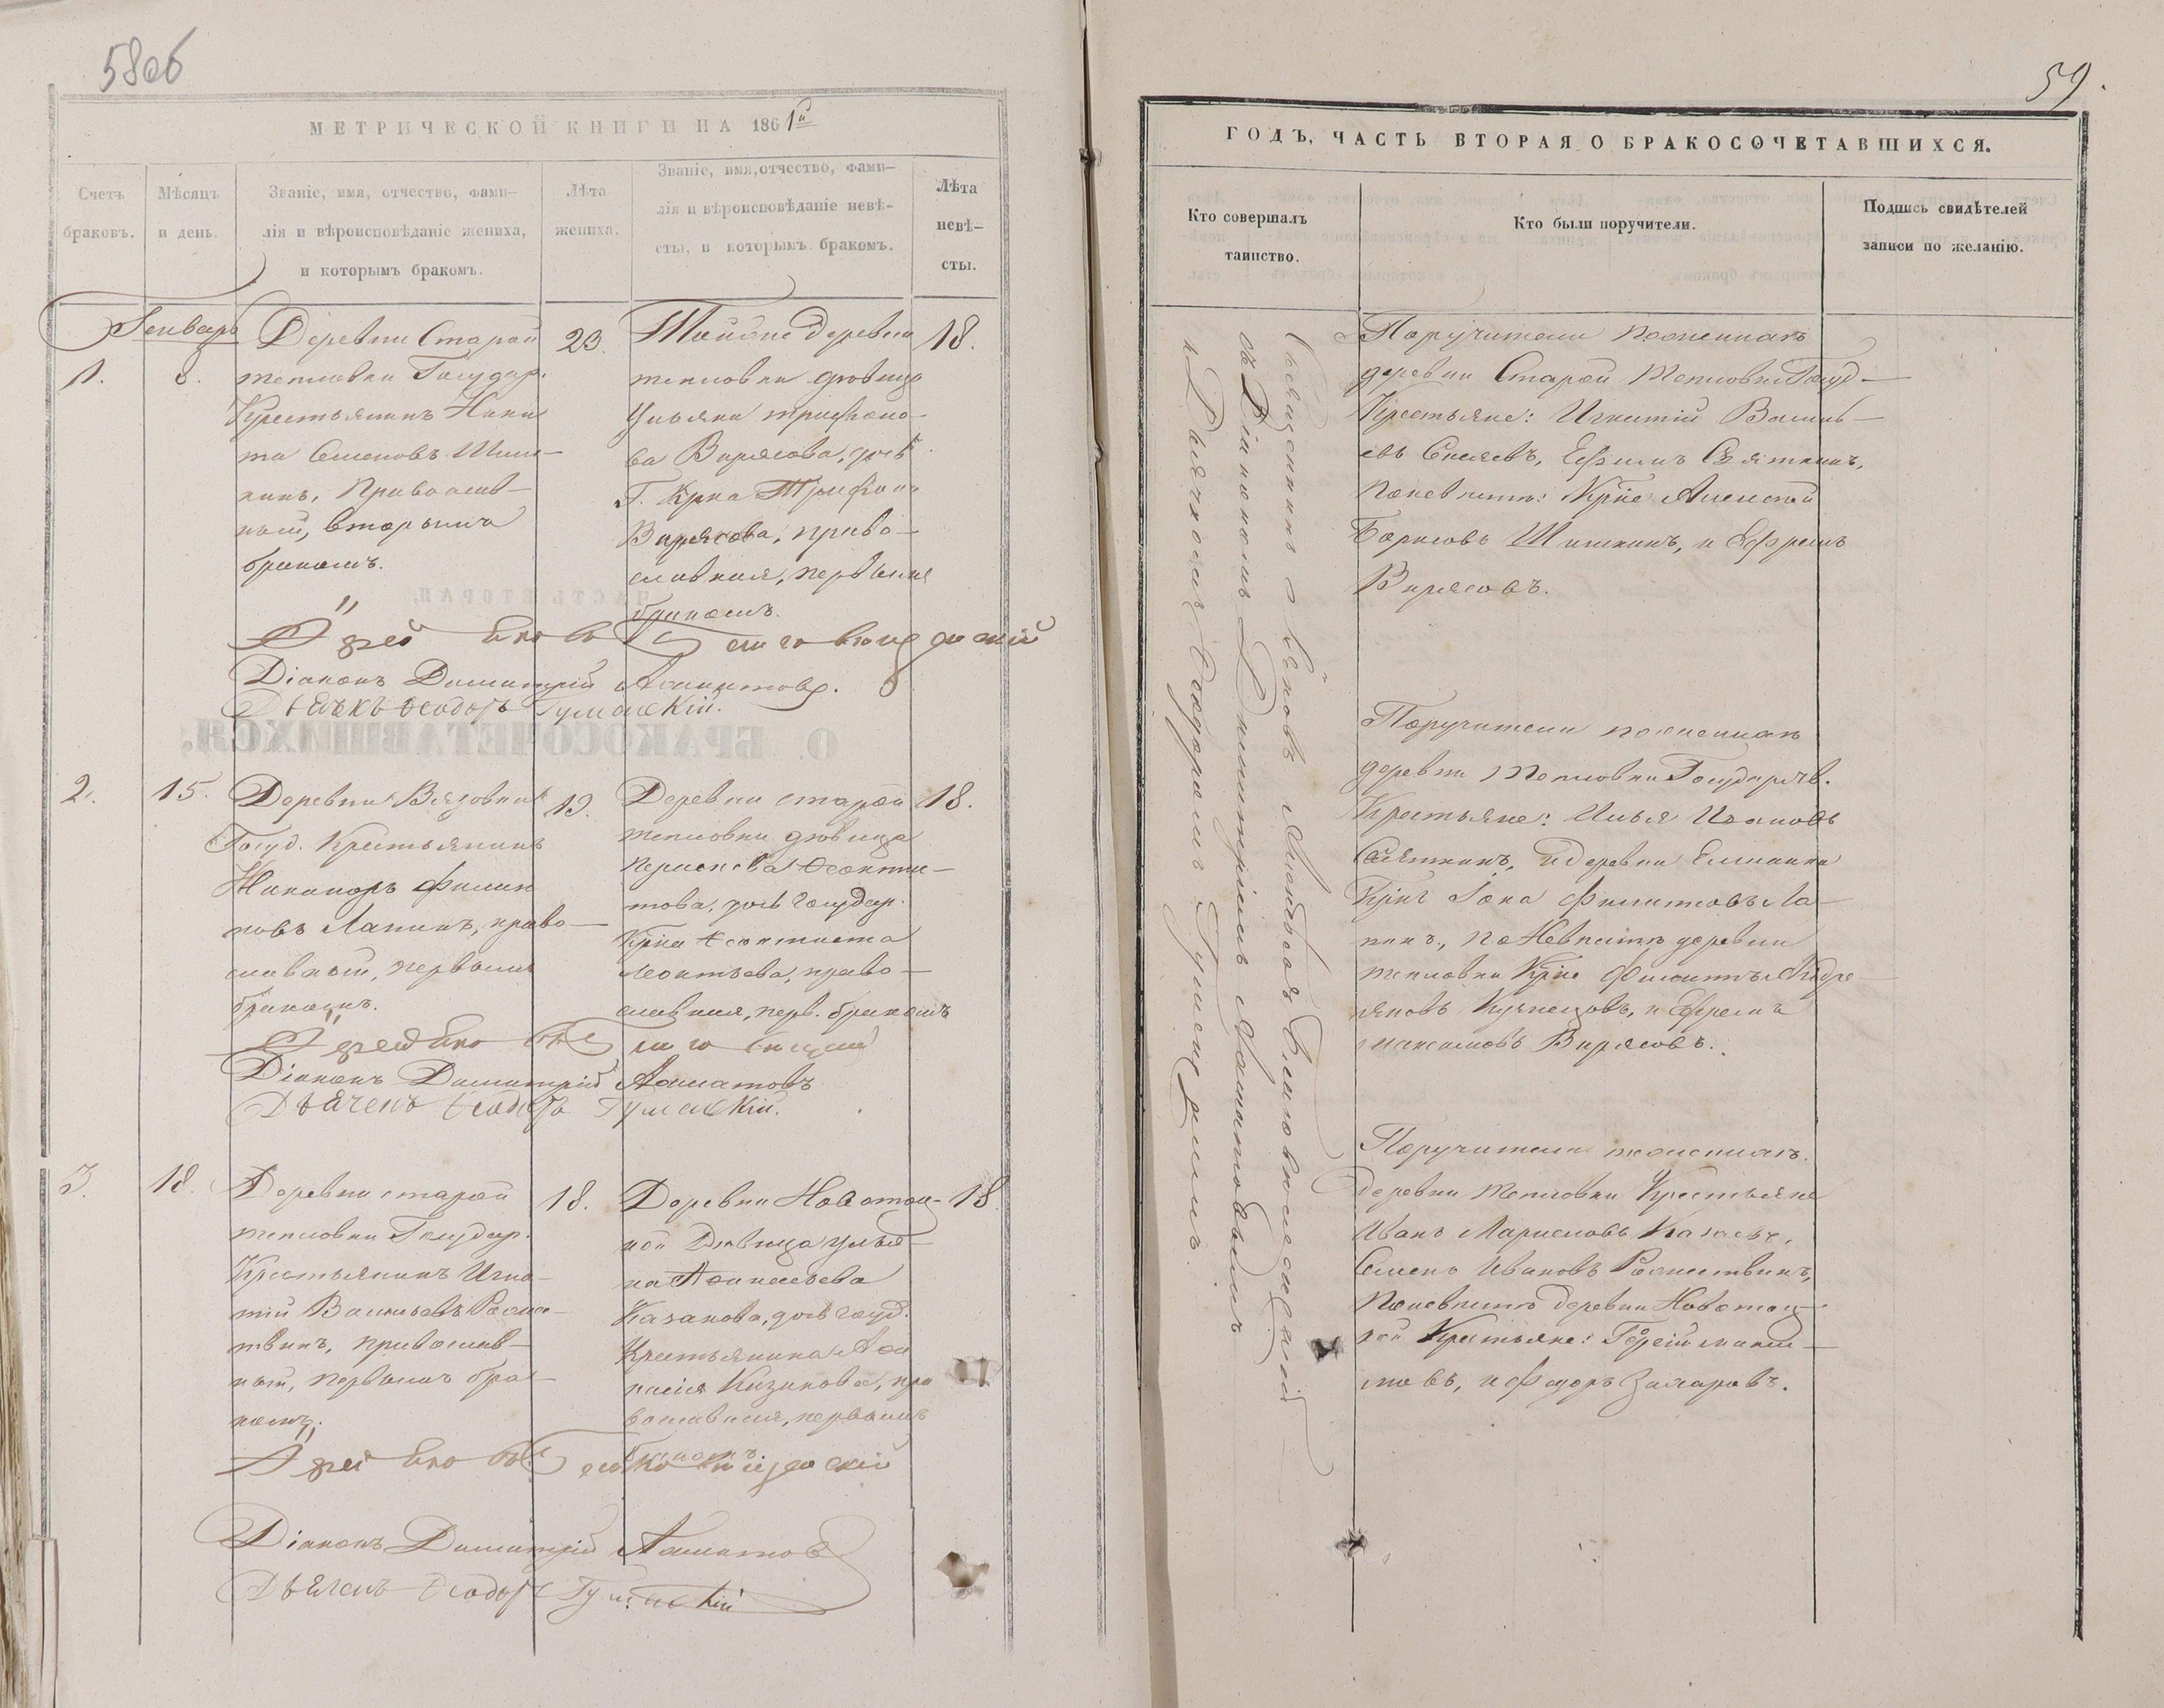 58об
МЕТРИЧЕСКОЙ КНИГИ НА 1861й
Счетъ браковъ.
Мѣсяцъ и день.
Званіе, имя, отчество, фами-
лія и вѣроисповѣданіе жениха,
и которымъ бракомъ.
Лѣта
жениха.
Званіе, имя, отчество, фами-
лія и вѣроисповѣданіе невѣ-
сты, и которымъ бракомъ.
Лѣта
невѣ-
сты.
Генварь
1.
8.
Деревни Старой
тепловки Государ.
Крестьянинъ Ники
та Семеновъ Шиш-
кинъ, Православ-
ный, вторымъ
бракомъ.
23.
Тойже деревни
тепловки дѣвица
Ульяна трифоно-
ва Вирясова, дочь
Г. Крна Трифона
Вирясова, право-
славная, первымъ
бракомъ.
18.
Іерей Іяковъ
Діаконъ Димитрій Алматовъ.
Дьячекъ Ѳеодоръ Гуменскій.
2.
15.
Деревни Вязовки
Госуд. Крестьянинъ
Никаноръ Филип
повъ Лапинъ, право-
славный, первымъ
бракомъ.
19.
Деревни старой
тепловки дѣвица
Ѳеокти-
това, дочь государ.
Крна Ѳеоктиста
Леонтьева, право-
славная, перв. бракомъ
18.
Іерей Іяковъ
Діаконъ Димитрій Алматовъ
Дьячекъ Ѳеодоръ Гуменскій.
3.
18.
Деревни старой
тепловки Государ.
Крестьянинъ Игна-
тій Васильевъ Рожде-
твинъ, православ-
ный, первымъ бра-
комъ.
18.
Деревни Новоточ-
ной Дѣвица улья-
на Аѳанасьева
Казакова, дочь госуд.
Крестьянина Аѳа
насія Казакова, пра
вославная, первымъ
бракомъ.
18.
Іерей Іяковъ
Діаконъ Димитрій Алматовъ
Дьячекъ Ѳеодоръ Гуменскій
59.
ГОДЪ, ЧАСТЬ ВТОРАЯ О БРАКОСОЧЕТАВШИХСЯ.
Кто совершалъ
таинство.
Кто были поручители.
Подпись свидѣтелей
записи по желанію.
Священникъ Іаковъ
съ Діакономъ Димитріемъ Алматовымъ
и Дьячкомъ Ѳеодоромъ Гуменскимъ
Поручители По женихѣ
деревни Старой Тепловки Госуд-
Крестьяне: Игнатій Василь-
евъ Ефимъ Святкинъ,
По невѣстѣ: Крне Алексѣй
Борисовъ Шишкинъ, и Ефремъ
Вирясовъ.
Поручители по женихѣ
деревни Тепловки Государств.
Крестьяне: Илья Ивановъ
Святкинъ, и деревни Елшанки
Крнъ Іона Филиповъ Ла-
пинъ, По Невѣстѣ деревни
тепловки Крне Филиппъ Андре-
яновъ Кузнецовъ, и Ефремъ
максимовъ Вирясовъ.
Поручители по женихѣ
деревни тепловки Крестьяне
Иванъ Ларионовъ
Семенъ Ивановъ Рождествинъ,
По невѣстѣ деревни Новоточ-
ной Крестьяне:
и Федоръ Захаровъ.